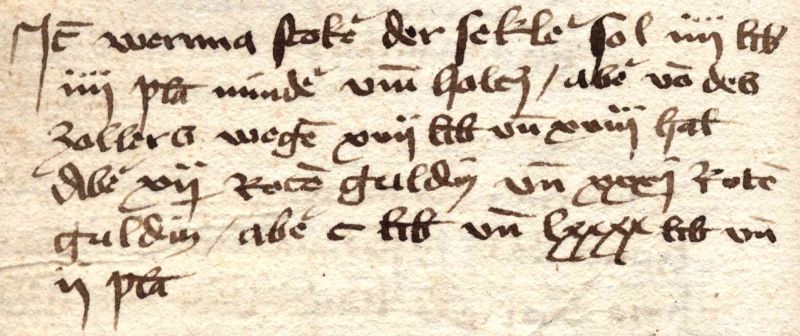 Jt̄ wernna stoke᷑ der sekle᷑ sol iiii lib
iiii pla᷑ minde᷑ vm̄ holcz / abe᷑ vō des
zollers wegē xvii lib vn̄ xviii hal
Abe᷑ xii Rotē guldin vn̄ xxxi Rotē
guldin / abe᷑ c lib vn̄ lxxxx lib vn̄
ii pla᷑